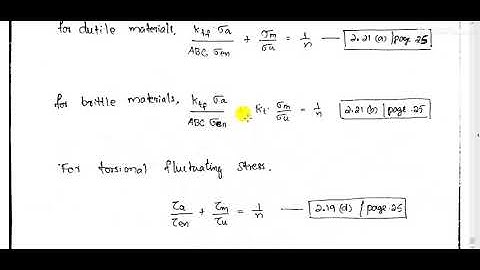 for ductile materials, K_tf σa / ABC σen + σm / σu = 1/n — 2.21 (a) / page 25
for brittle materials, K_tf σa / ABC σen K_t · σm / σu = 1/n 2.21 (b) / page .25
For torsional fluctuating stress.
τa / τen + τm / τu = 1/n — 2.19 (d) / page.25